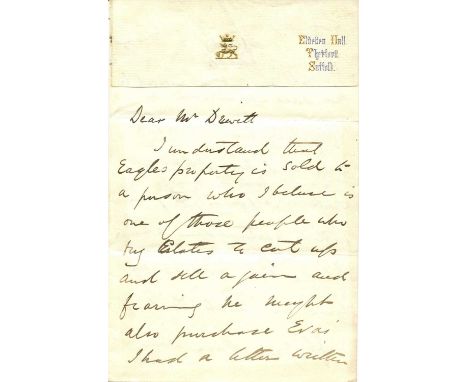 Elveden Hall.
Thetford.
Suffolk.
Dear Mr Dewitt
I understand that
Eagles property is sold to
a person who I beleive is
one of those people who
buy Estates to cut up
and sell again and
fearing he might
also purchase
I had a letter written